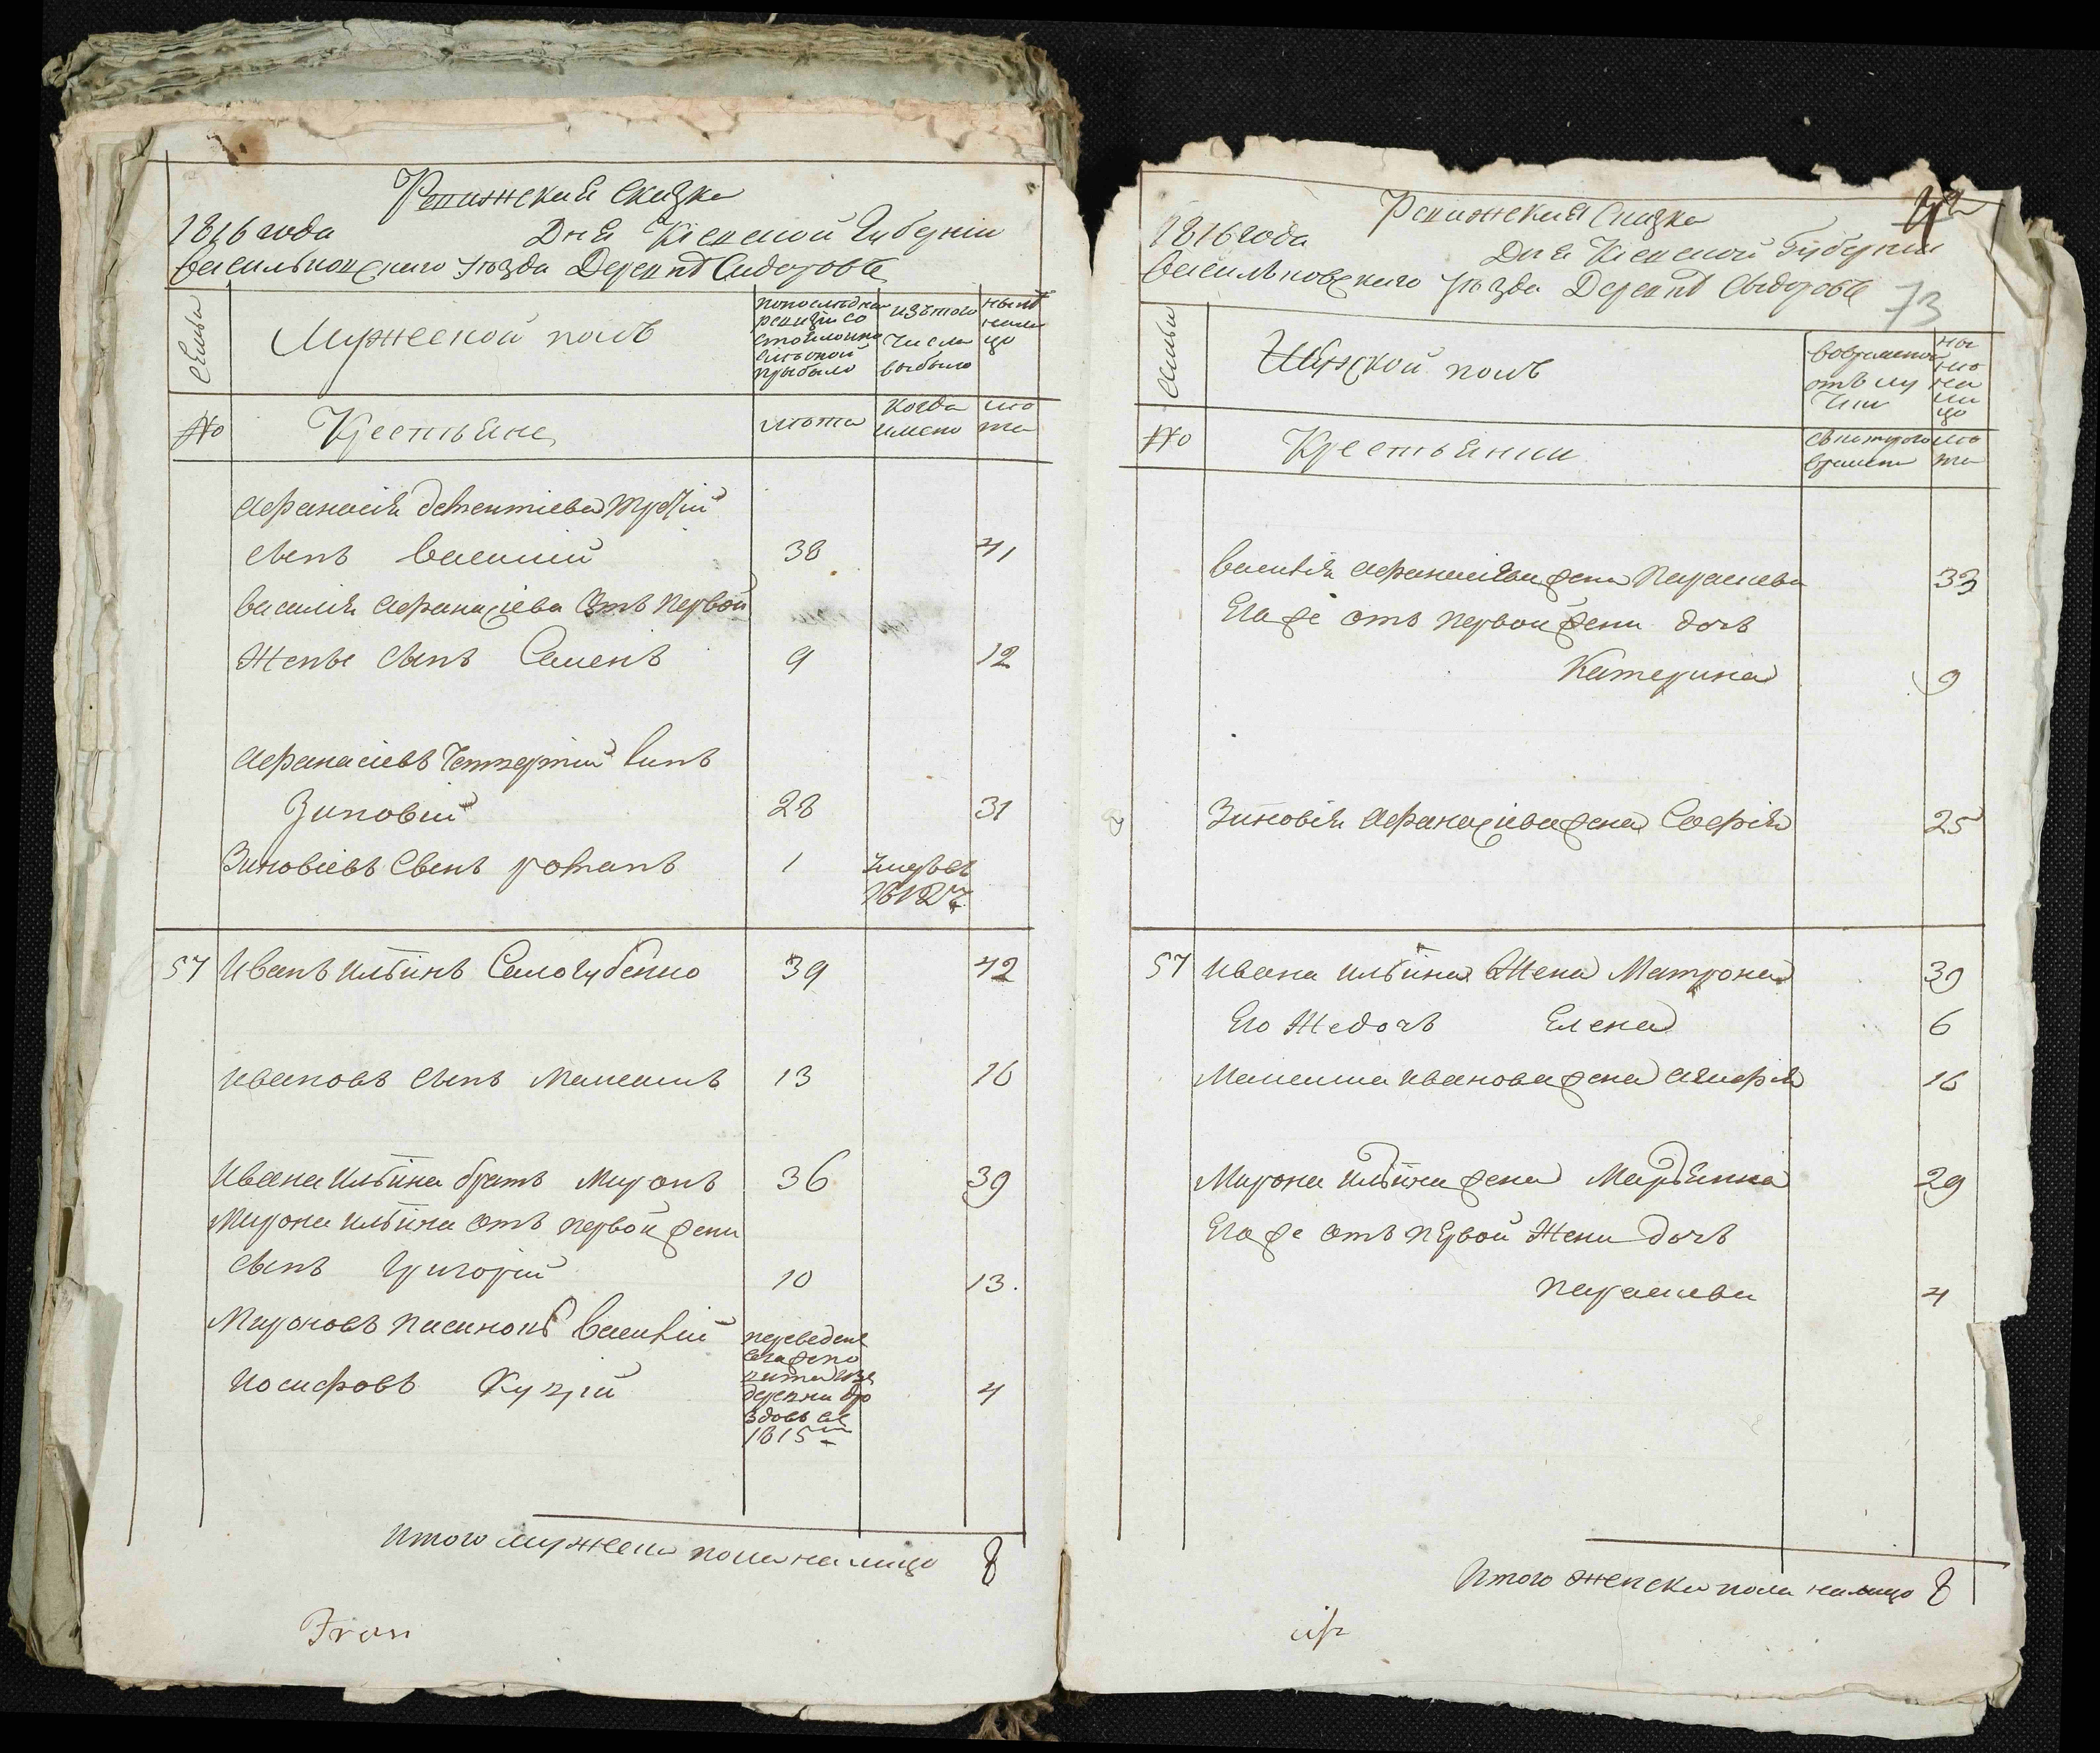 Ревижская сказка
1816 года Дня Кіевской Губерніи
Васильковскаго уѣзда Деревнѣ Сидоровке
Семьи
Мужеской полъ
по последней ревизіи состояло и после оной прибыло
изъ того числа выбыло
ныне на лицо
№
Крестьяне
лѣта
когда имено
лѣта
Афанасія Терентіева третій
сынъ Василий 38 41
Василия Афанасіева отъ первой
Жены сынъ Семенъ 9 12
Афанасіевъ Четвертий сынъ
Зиновій 28 31
Зиновіевъ сынъ романъ 1 умеръ въ 1812 г.
57 Иванъ Ильинъ Сологубенко 39 42
Ивановъ сынъ Максимъ 13 16
Ивана Ильина братъ Миронъ 36 39
Мирона Ильина отъ первой жени
сынъ Григорій 10 13.
Мироновъ пасинокъ Василій переведенъ
Иосифовъ 4
деревни
1815
Итого мужеска пола на лицо 8
Ревижская Сказка
73
1816 года Дня Кіевской Губерніи
Васильковскаго уѣзда Деревнѣ Сидоровке
Семьи
Женской полъ
во временной отлучки
ныне на лицо
№
Крестьянки
съ которого времени
лѣта
Василія Афанасіева жена Параскева 33
Его же отъ первой жени дочь
Катерина 9
Зиновія Афанасіева жена Софія 25
57 Ивана Ильина Жена Матрона 39
Его Же дочь Елена 6
Максима Иванова жена Агафія 16
Мирона Ильина жена Марьянна 29
Его же отъ первой Жени дочь
Параскева 4
Итого женска пола на лицо 8